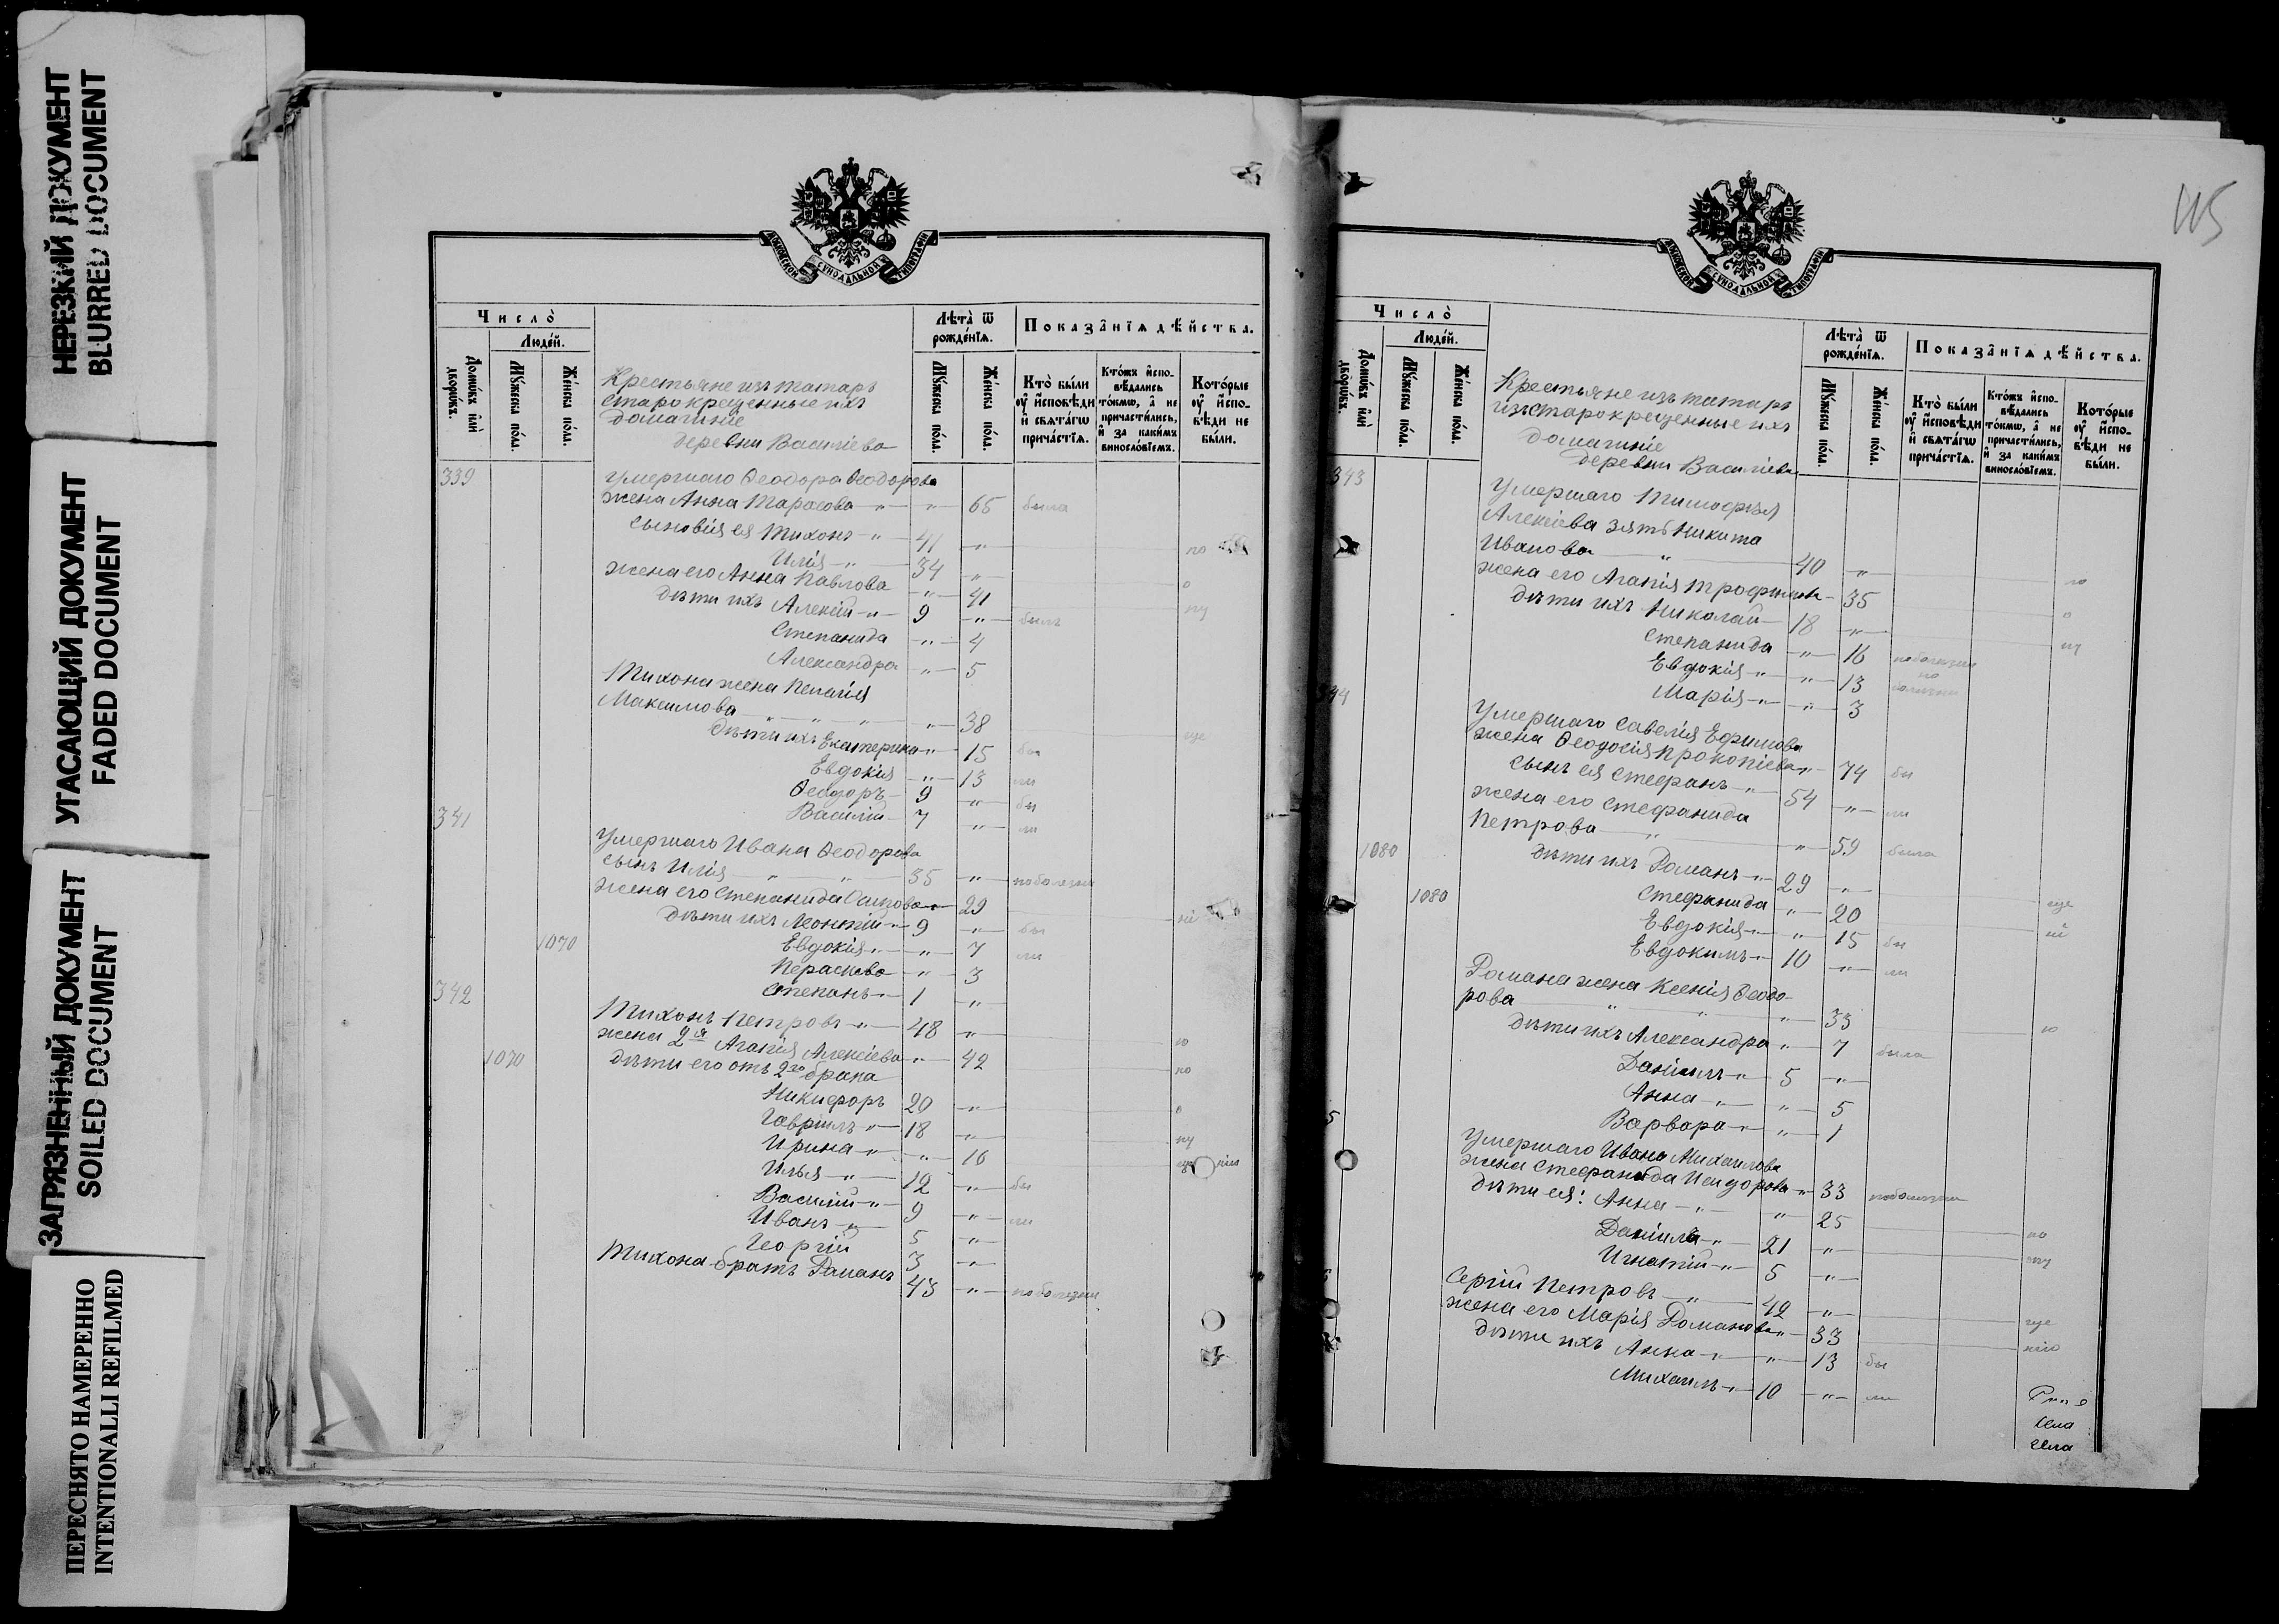 НЕРЕЗКИЙ ДОКУМЕНТ
BLURRED DOCUMENT
УГАСАЮЩИЙ ДОКУМЕНТ
FADED DOCUMENT
ЗАГРЯЗНЕННЫЙ ДОКУМЕНТ
SOILED DOCUMENT
ПЕРЕСНЯТО НАМЕРЕННО
INTENTIONALLI REFILMED
Число̀
Людей.
Домѡвъ и҆лѝ дворѡвъ.
Мꙋ́жеска пола.
Же́нска пола.
Крестьяне изъ татаръ
старокрещенные и ихъ
домашніе
деревни Васильева
Лѣта̀ ѿ
рожде́нїѧ.
Мꙋ́жеска пола.
Же́нска пола.
Показа̂нїѧ дѣ́йства.
Кто̀ бы́ли
оу҆ и҆сповѣди
и҆ свѧта́гѡ
прича́стїѧ.
Кто́жъ и҆спо-
вѣдались
то́кмѡ, а҆ не
причасти́лись,
и҆ за каки́мъ
винослові́емъ.
Кото́рые
оу҆ и҆спо-
вѣди не
бы́ли.
339
Умершаго Ѳеодора Ѳеодорова
жена Анна Тарасова 65 была
сыновія ея Тихонъ 41 по
Илія 34
жена его Анна Павлова 41 о
дѣти ихъ Алексій 9 былъ пу
Степанида 4
Александра 5
Тихона жена Пелагія
Максимова 38 ще
дѣти их Екатерина 15 бы
Евдокія 13 ли
Ѳеодоръ 9 бы
341
Василій 7 ли
Умершаго Ивана Ѳеодорова
сынъ Илія 35 по болезни
жена его Степанида Осипова 29 ні
дѣти ихъ Леонтій 9 бы
1070 Евдокія 7 ли
Параскева 3
342
Степанъ 1
Тихонъ Петровъ 48 ю
жена 2я Агапія Алексіева 42 по
1070 дѣти его отъ 2го брака
Никифоръ 20 о
Гавріилъ 18 пу
Ирина 16
Илья 12 бы
Василій 9 ли
Иванъ 5
Георгій 3
Тихона братъ Романъ 43 по болезни
115
Число̀
Людей.
Домѡвъ и҆лѝ дворѡвъ.
Мꙋ́жеска пола.
Же́нска пола.
Крестьяне изъ татаръ
изъ старокрещенные и ихъ
домашніе
деревни Васильева
Лѣта̀ ѿ
рожде́нїѧ.
Мꙋ́жеска пола.
Же́нска пола.
Показа̂нїѧ дѣ́йства.
Кто̀ бы́ли
оу҆ и҆сповѣди
и҆ свѧта́гѡ
прича́стїѧ.
Кто́жъ и҆спо-
вѣдались
то́кмѡ, а҆ не
причасти́лись,
и҆ за каки́мъ
винослові́емъ.
Кото́рые
оу҆ и҆спо-
вѣди не
бы́ли.
343
Умершаго Тимоѳея
Алексіева зять Никита
Иванова 40 по
жена его Агапія Трофимова 35 о
дѣти ихъ Николай 18 пу
Степанида 16 по болезни
Евдокія 13 по болезни
Марія 3
Умершаго Савелія Ефимова
жена Ѳеодосія Прокопіева 74 бы
сынъ ея Стефанъ 54 ли
жена его Стефанида
Петрова 59 была
1080
дѣти ихъ Романъ 29 ще
1080 Стефанида 20 ні
Евдокія 15 бы
Евдокимъ 10 ли
Романа жена Ксенія Ѳеодо-
рова 33 ю
дѣти ихъ Александра 7 была
Даніилъ 5
Анна 5
Варвара 1
Умершаго Ивана Михаилова
жена Стефанида Исидорова 33 по болезни
дѣти ея: Анна 25 по
Даніилъ 21 пу
Игнатій 5
Сергій Петровъ 42 ще
жена его Марія Романова 33 нію
дѣти ихъ Анна 13 бы
Михаилъ 10 ли
села
села